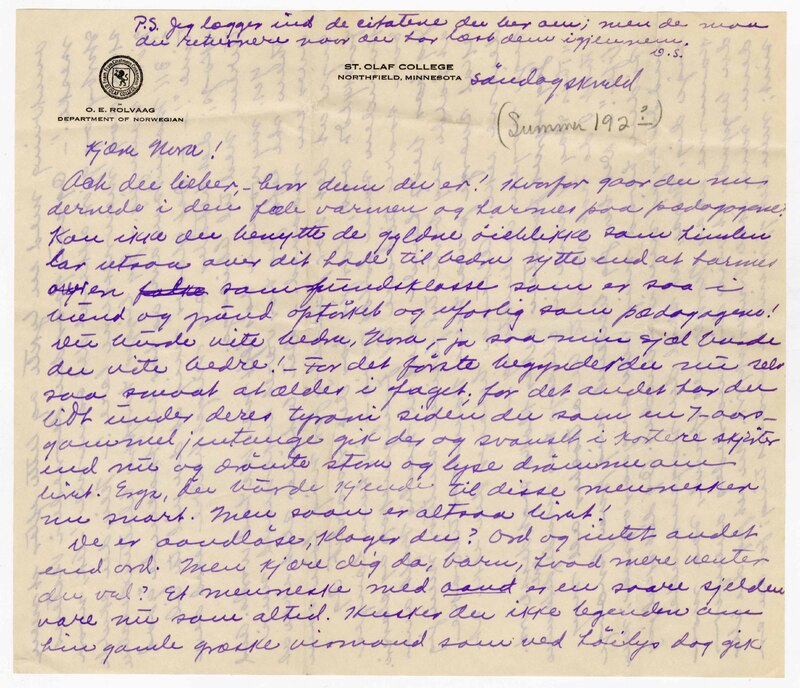 P.S. Jeg lægger ind de citatene du ber om; men de maa
du returnere naar du har læst dem igjennem.
O.S.
ST. OLAF COLLEGE
NORTHFIELD, MINNESOTA
Söndagskveld
O. E. RÖLVAAG
DEPARTMENT OF NORWEGIAN
(Summer 192?)
Kjære Nora!
Ach du lieber, – hvor dum du er! Hvorfor gaar du nu
dernede i den fæle varmen og harmes paa pædagogene?
Kan ikke du benytte de gyldne öieblikke som himlen
lar utsaa over dit hode til bedre nytte end at harmes
over en falke samfundsklasse som er saa i
bund og grund optörket og ufarlig som pædagogene!
Du burde vite bedre, Nora, – ja saa min sjæl burde
du vite bedre! – For det förste begynder du nu selv
saa smaat at ældes i faget; for det andet har du
lidt under deres tyrani siden du som en 7-aars-
gammel jentunge gik der og svanset i kortere skjörter
end nu og drömte store og lyse drömme om
livet. Ergo, du burde kjende til disse mennesker
nu snart. Men saan er altsaa livet!
De er aandlöse, klager du? Ord og intet andet
end ord. Men kjære dig da, barn, hvad mere venter
du vel? Et menneske med aand er en saare sjelden
vare nu som altid. Husker du ikke legenden om
hin gamle græske vismand som ved höilys dag gik